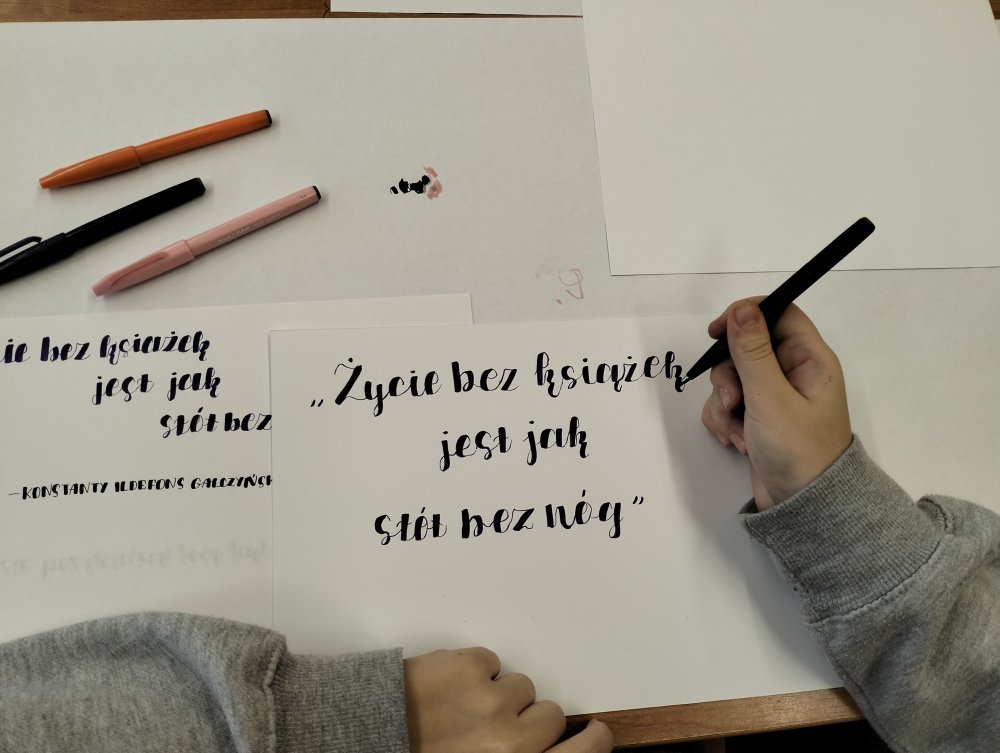 bez książek
jest jak
stół bez
– KONSTANTY ILDEFONS GAŁCZYŃSK
„Życie bez książek
jest jak
stół bez nóg”